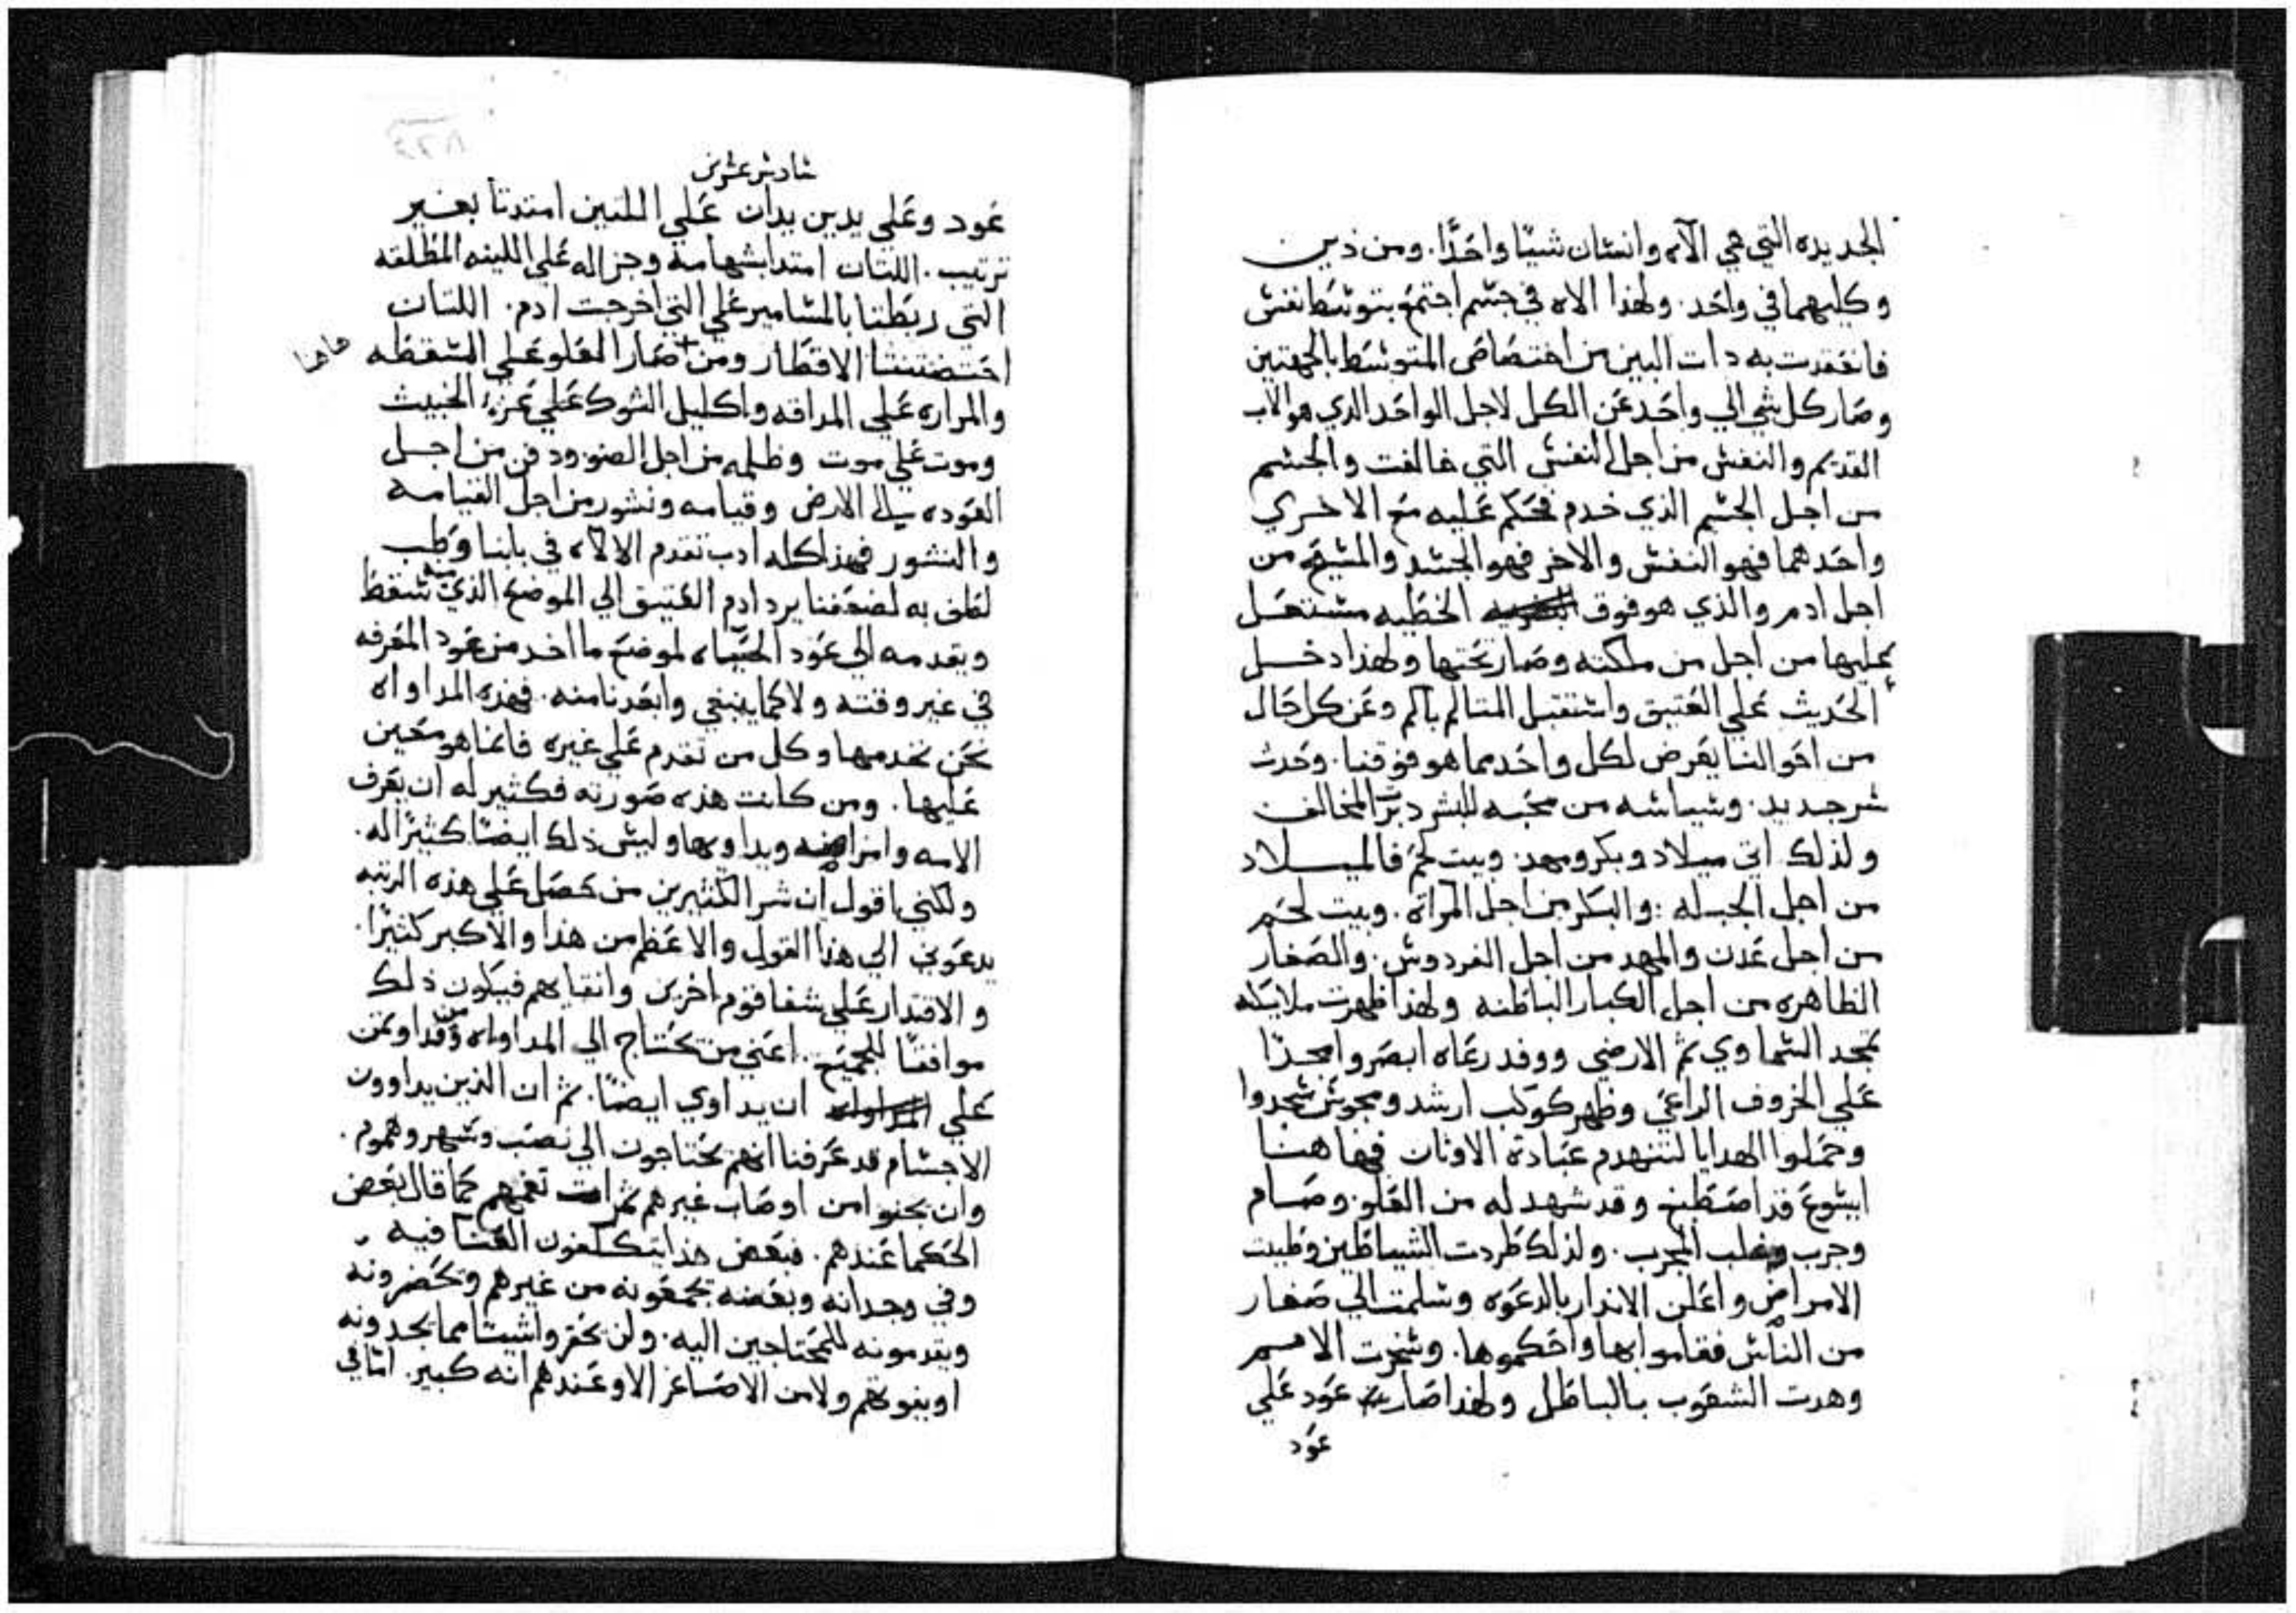 الجديده التي هي الآه وانسان شيا واحدًا. ومن ذين
وكليهما في واحد. ولهذا الاه في جسم اجتمع بتوسط نفس
فانعقدت به دات البين من اختصاص المتوسط بالجهتين
وصار كل شي الي واحد عن الكل لاجل الواحد الدي هو الاب
القديم والنفس من اجل النفس التي خالفت والجسم
من اجل الجسم الذي خدم فحكم عليه مع الاخري
واحدهما فهو النفس والاخر فهو الجسد والمسيح من
اجل ادم والذي هو فوق الخطيه مستعل
عليها من اجل من ملكته وصار تحتها ولهذا دخل
الحديث علي العتيق واستقبل المتالم بآلم وعن كل حال
من احوالنا يعرض لكل واحد مما هو فوقنا. وحدث
سر جديد. وسياسه من محبه للبشر دبرت المخالف
ولذلك اتي ميلاد وبكر ومهد. وبيت لحم فالميلاد
من اجل الجبله: والبكر من اجل المراه. وبيت لحم
من اجل عدن والمهد من اجل الفردوس. والصغار
الظاهره من اجل الكبار الباطنه ولهذا ظهرت ملايكه
تمجد السماوي ثم الارضي ووفد رعاه ابصروا مجدًا
علي الخروف الراعي وظهر كوكب ارشد ومجوس سجدوا
وحملوا الهدايا لتنهدم عبادة الاوثان فهاهنا
ايسوع قد اصطبغ وقد شهد له من العلو. وصام
وجرب وغلب المجرب. ولذلك طردت الشياطين وطيبت
الامراض واعلن الاندار بالدعوه وسلمت الي صغار
من الناس فقاموا بها واحكموها. وسخرت الامم
وهدت الشعوب بالباطل ولهذا صار عود علي
عود
سادس عشرين
عود وعلي يدين يدان علي اللتين امتدتا بغير
ترتيب. اللتان امتدا بشهامه وجزاله علي اللينه المطلقه
التي ربطتا بالمسامير علي التي اخرجت ادم. اللتان
احتضنتا الاقطار ومن صار العلو علي السقطه
هاهنا
والمراره علي المداقه واكليل الشوك علي عزة الخبيث
وموت علي موت وظلمه من اجل الضو. ودفن من اجل
العوده الي الارض وقيامه ونشور من اجل القيامه
والنشور فهذا كله ادب تقدم الالآه في بابنا وطب
لطف به لضعفنا يرد ادم العتيق الي الموضع الذي سقط منه
ويقدمه الي عود الحياه لموضع ما اخد من عود المعرفه
في غير وقته ولا كما ينبغي وابعدنا منه. فهذه المداواه
نحن نخدمها وكل من تقدم علي غيره فانما هو معين
عليها. ومن كانت هذه صورته فكثير له ان يعرف
الامه وامراضه ويداويها وليس ذلك ايضًا كثيرًا له.
ولكني اقول ان شر الكثيرين من حصل علي هذه الرتبه
يدعوني الي هذا القول والاعظم من هذا والاكبر كثيرًا.
والاقتدار علي شفا قوم اخرين وانقايهم فيكون ذلك
موافقًا للجميع. اعني من يحتاج الي المداواه ومن قد اوتمن
علي ان يداوي ايضًا. ثم ان الذين يداوون
الاجسام قد عرفنا انهم يحتاجون الي نصب وسهر وهموم.
وان يجنوا من اوصاب غيرهم ثمرات تغمهم كما قال بعض
الحكما عندهم. فبعض هذا يتكلفون العنا فيه
وفي وجدانه وبعضه يجمعونه من غيرهم ويحضرونه
ويقدمونه للمحتاجين اليه. ولن يحقروا شيئا مما يجدونه
او يفوتهم ولا من الاصاغر الا وعندهم انه كبير. اما في